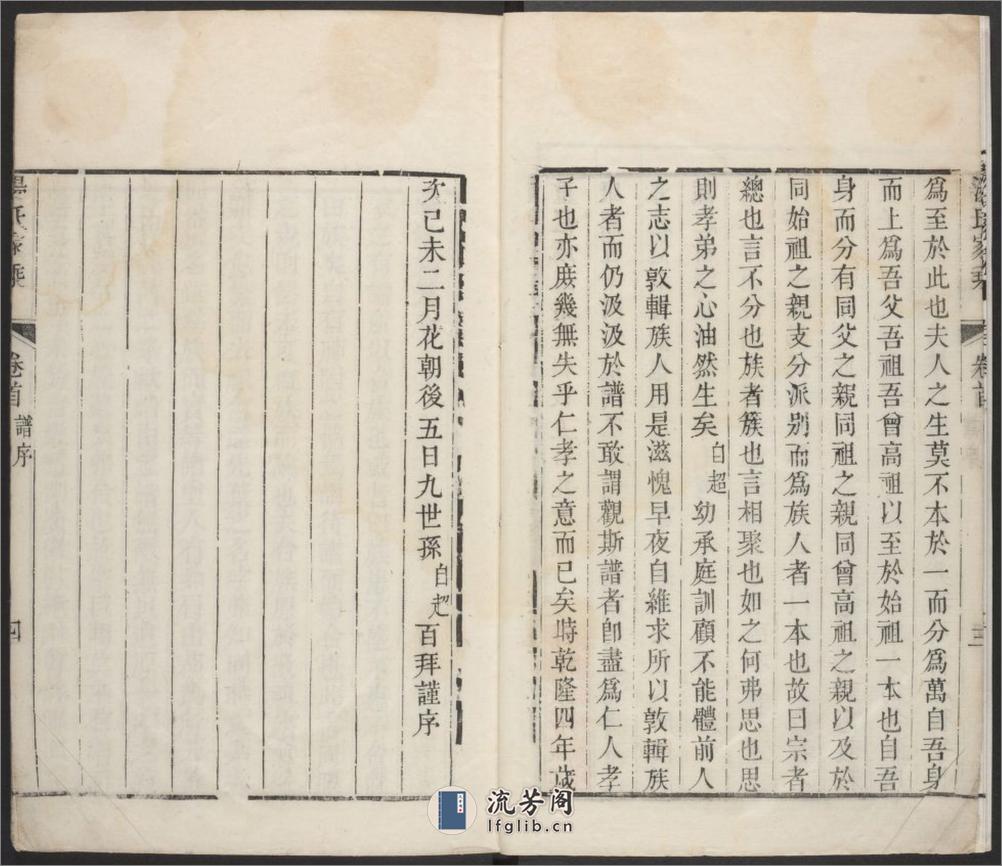 爲至於此也夫人之生莫不本於一而分爲萬自吾身
而上爲吾父吾祖吾曾高祖以至於始祖一本也自吾
身而分有同父之親同祖之親同曾高祖之親以及於
同始祖之親支分派别而爲族人者一本也故曰宗者
總也言不分也族者簇也言相聚也如之何弗思也思
則孝弟之心油然生矣白超幼承庭訓顧不能體前人
之志以敦輯族人用是滋愧早夜自維求所以敦輯族
人者而仍汲汲於譜不敢謂觀斯譜者卽盡爲仁人孝
子也亦庻幾無失乎仁孝之意而已矣時乾隆四年歲
次己未二月花朝後五日九世孫白超百拜謹序
卷首
譜序
四
卷首
三
流芳阁
lfglib.cn